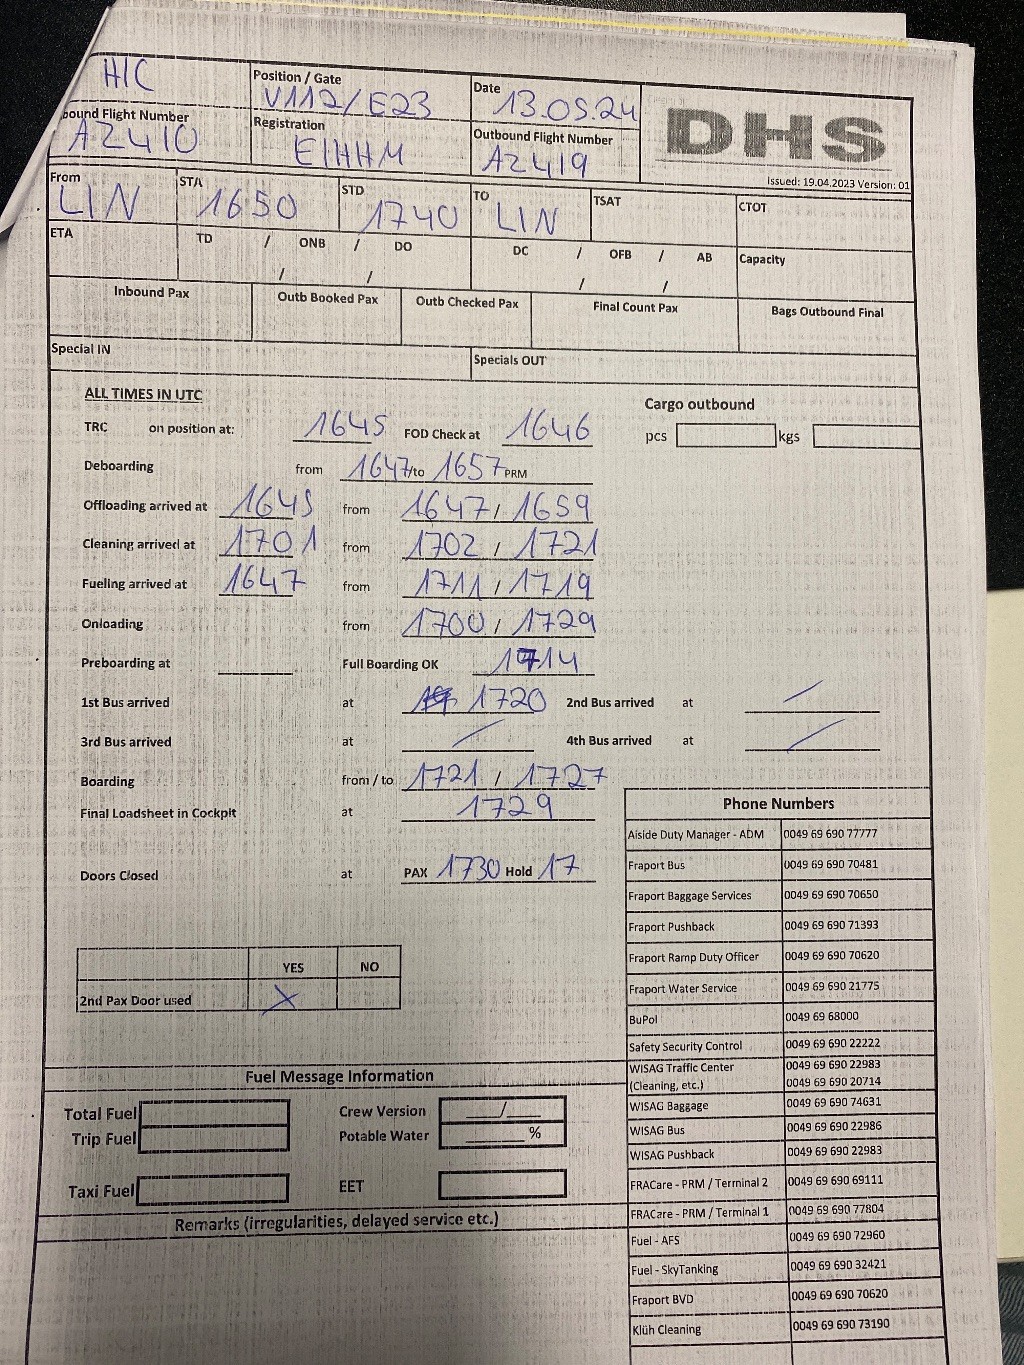 HIC
Position / Gate
V112/E23
Date
13.05.24
DHS
Issued: 19.04.2023 Version: 01
bound Flight Number
AZ410
Registration
EIHHM
Outbound Flight Number
AZ419
From
LIN
STA
1650
STD
1740
TO
LIN
TSAT
CTOT
ETA
TD / ONB / DO
/ /
DC / OFB / AB
/ /
Capacity
Inbound Pax
Outb Booked Pax
Outb Checked Pax
Final Count Pax
Bags Outbound Final
Special IN
Specials OUT
ALL TIMES IN UTC
Cargo outbound
pcs kgs
TRC on position at: 1645 FOD Check at 1646
Deboarding from 1647/to 1657 PRM
Offloading arrived at 1645 from 1647 / 1659
Cleaning arrived at 1701 from 1702 / 1721
Fueling arrived at 1647 from 1711 / 1719
Onloading from 1700 / 1729
Preboarding at Full Boarding OK 1714
1st Bus arrived at 1720 2nd Bus arrived at /
3rd Bus arrived at / 4th Bus arrived at /
Boarding from / to 1721 / 1727
Final Loadsheet in Cockpit at 1729
Doors Closed at PAX 1730 Hold 17
YES NO
2nd Pax Door used X
Fuel Message Information
Total Fuel
Trip Fuel
Taxi Fuel
Crew Version /
Potable Water %
EET
Remarks (irregularities, delayed service etc.)
Phone Numbers
Aiside Duty Manager - ADM 0049 69 690 77777
Fraport Bus 0049 69 690 70481
Fraport Baggage Services 0049 69 690 70650
Fraport Pushback 0049 69 690 71393
Fraport Ramp Duty Officer 0049 69 690 70620
Fraport Water Service 0049 69 690 21775
BuPol 0049 69 68000
Safety Security Control 0049 69 690 22222
WISAG Traffic Center 0049 69 690 22983
(Cleaning, etc.) 0049 69 690 20714
WISAG Baggage 0049 69 690 74631
WISAG Bus 0049 69 690 22986
WISAG Pushback 0049 69 690 22983
FRACare - PRM / Terminal 2 0049 69 690 69111
FRACare - PRM / Terminal 1 0049 69 690 77804
Fuel - AFS 0049 69 690 72960
Fuel - SkyTanking 0049 69 690 32421
Fraport BVD 0049 69 690 70620
Klüh Cleaning 0049 69 690 73190